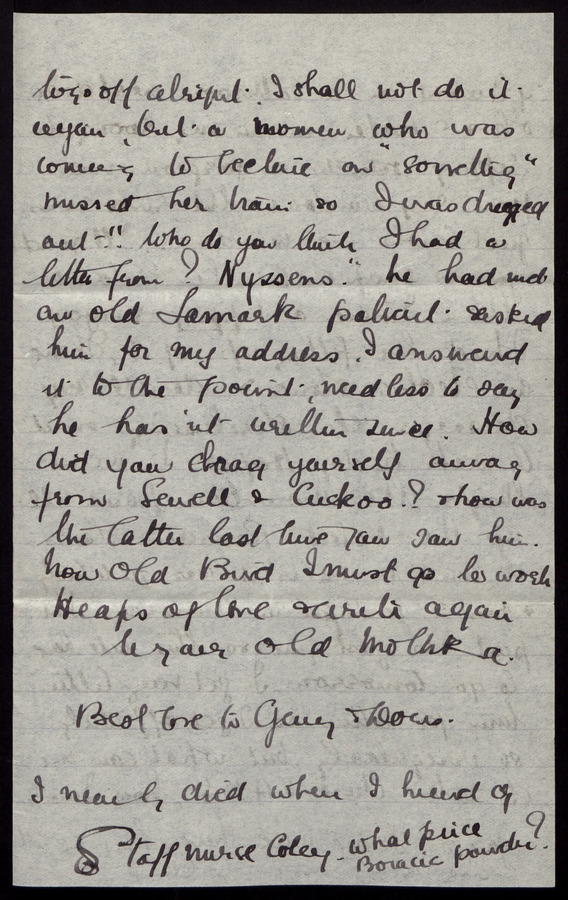 to go off alright. I shall not do it
again, but a women who was
coming to lecture on "something"
missed her train so I was dragged
out!! Who do you think I had a
letter from? Nyssens." he had met
an old Lamark patient & asked
him for my address. I answered
it to the point, needless to say
he has'nt written since. How
did you drag yourself away
from Sewell & Cuckoo.? & how was
the latter last time you saw him.
Now Old Bird I must go to work
Heaps of love & write again
to your old
Best love to Geny & Doris.
I nearly died when I heard of
Staff nurse Coley - what price
Boracic powder?